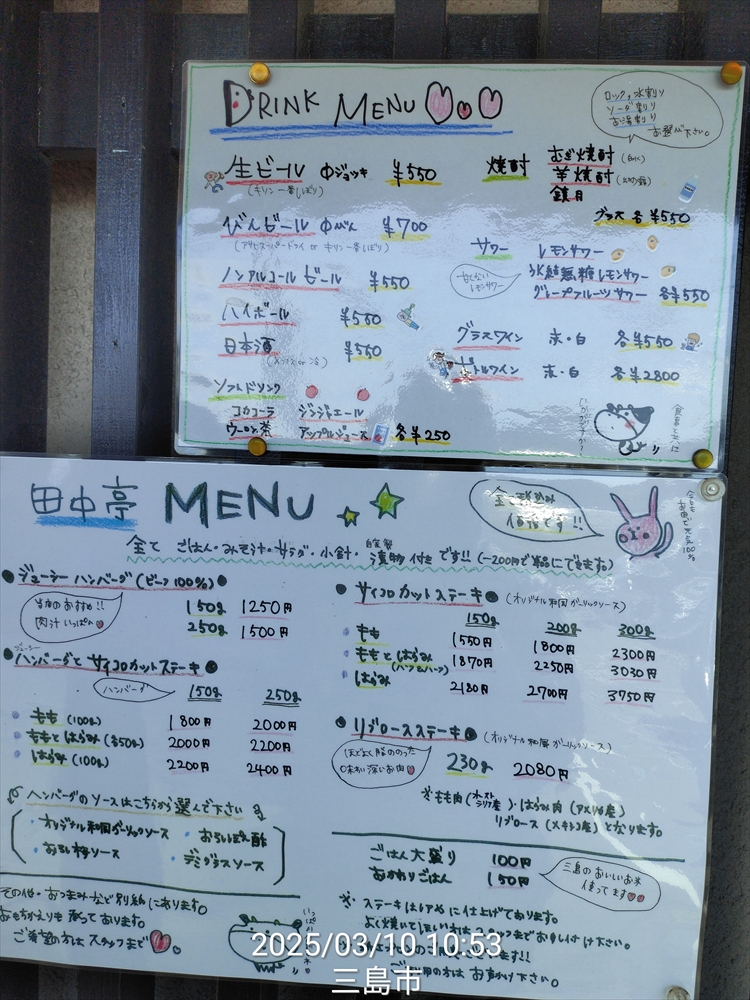 DRINK MENU
ロック、水割り
ソーダ割り
お湯割り
お選び下さい。
生ビール 中ジョッキ ¥550
(キリン一番しぼり)
びんビール 中びん ¥700
(アサヒスーパードライ or キリン一番しぼり)
ノンアルコールビール ¥550
ハイボール ¥550
日本酒 ¥550
ソフトドリンク
コカコーラ ジンジャエール
ウーロン茶 アップルジュース 各¥250
焼酎 むぎ焼酎
芋焼酎
鏡月
グラス 各¥550
サワー レモンサワー
甘くない
レモンサワー
氷結無糖レモンサワー
グレープフルーツサワー 各¥550
グラスワイン 赤・白 各¥550
ボトルワイン 赤・白 各¥2800
食事と共に
いかがですか?
田中亭 MENU
全て税込み
価格です!!
今日も
お肉で元気100%
全て ごはん・みそ汁・サラダ・小鉢・自家製漬物付きです!! (-200円で単品にできます。)
ジューシーハンバーグ (ビーフ100%)
当店のおすすめ!!
肉汁いっぱい
150g 1250円
250g 1500円
ジューシー
ハンバーグとサイコロカットステーキ
ハンバーグ 150g 250g
もも (100g) 1800円 2000円
ももとはらみ (各50g) 2000円 2200円
はらみ (100g) 2200円 2400円
ハンバーグのソースはこちらから選んで下さい
・オリジナル和風ガーリックソース ・おろしぽん酢
・おろし梅ソース ・デミグラスソース
その他・おつまみなど別紙にあります。
おもちかえりも承っております。
ご希望の方はスタッフまで
サイコロカットステーキ (オリジナル和風ガーリックソース)
150g 200g 300g
もも 1550円 1800円 2300円
ももとはらみ (ハーフ&ハーフ) 1870円 2250円 3030円
はらみ 2180円 2700円 3750円
リブロースステーキ (オリジナル和風ガーリックソース)
ほどよく脂ののった
味わい深いお肉
230g 2080円
※もも肉 (オーストラリア産)・はらみ肉 (アメリカ産)
リブロース (メキシコ産) となります。
ごはん大盛り 100円
おかわりごはん 150円
三島のおいしいお米
使ってます
※ ステーキはレアめに仕上げております。
よく焼いてほしい方はスタッフまでお申し付け下さい。
ご利用の方は お声かけ下さい。
2025/03/10 10:53
三島市